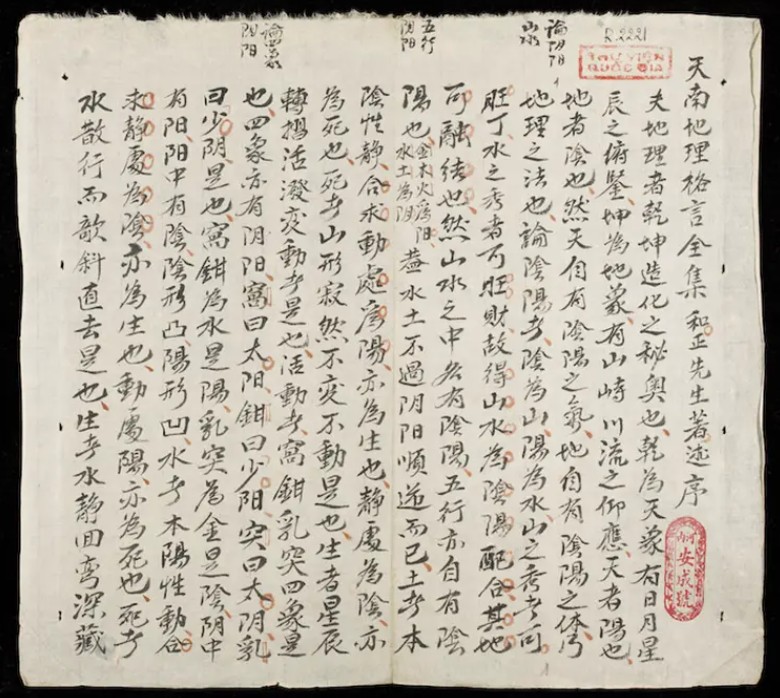 R.2221
THƯ VIỆN
QUỐC GIA
論阴阳
山水
五行
阴阳
論四象
阴阳
天南地理格言全集 和正先生著述序
夫地理者乾坤造化之秘奥也乾為天象有日月星
辰之俯坤為地象有山峙川流之仰應天者陽也
地者陰也然天自有陰陽之氣地自有陰陽之体乃
地理之法也論陰陽者陰為山陽為水山之秀者可
旺丁水之秀者可旺財故得山水為陰陽配合其地
可融結也然山水之中各有陰陽五行亦自有陰
陽也金木火為陽水土為阴盖水土不過阴阳順逆而已土者本
陰性静合求動處為陽亦為生也静處為陰亦
為死也死者山形寂然不変不動是也生者星辰
轉摺活潑変動者是也活動者窩鉗乳突四象是
也四象亦有阴阳窩曰太阳鉗曰少阳突曰太阴乳
曰少阴是也窩鉗為水是陽乳突為金是陰阴中
有阳阳中有陰陰形凸陽形凹水者本陽性動合
求静處為陰亦為生也動處陽亦為死也死者
水散行而欹斜直去是也生者水静回弯深藏
河内
安成號